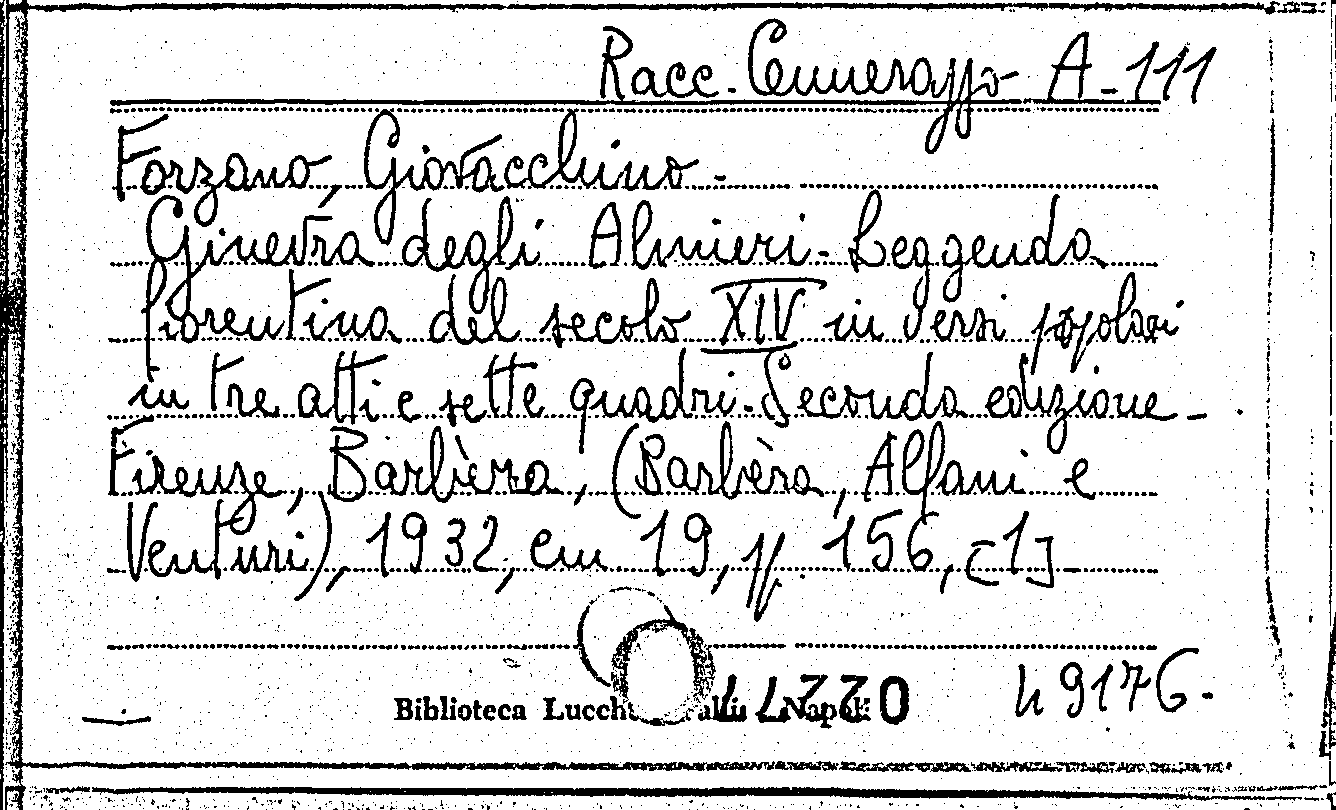 Racc. Cennerazzo A-111
Forzano, Giovacchino.-
Ginevra degli Almieri. Leggenda
fiorentina del secolo XIV in versi popolari
in tre atti e sette quadri. Seconda edizione -
Firenze, Barbèra, (Barbèra, Alfani e
Venturi), 1932, cm. 19, pp. 156, [1]
49176.
Biblioteca Napoli